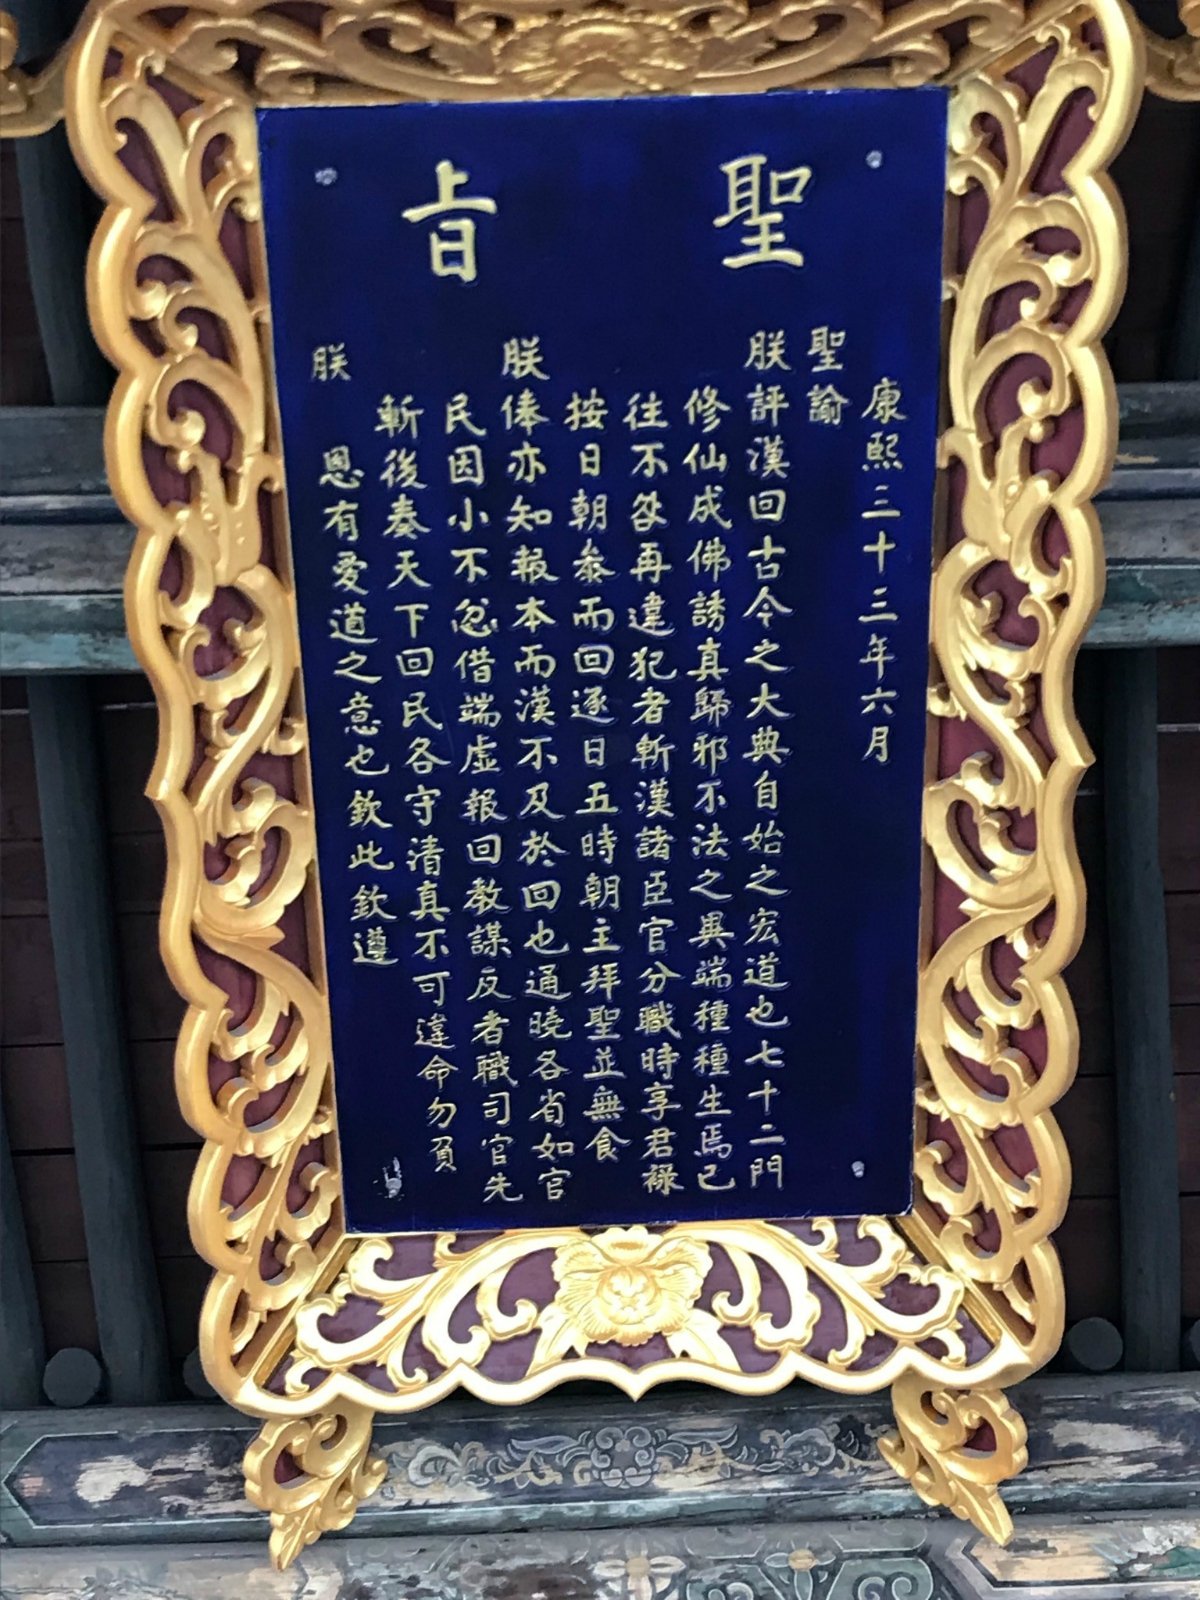 聖旨
康熙三十三年六月
聖諭
朕評漢回古今之大典自始之宏道也七十二門
修仙成佛誘真歸邪不法之異端種種生焉已
往不咎再違犯者斬漢諸臣官分職時享君祿
按日朝叅而回逐日五時朝主拜聖並無食
朕俸亦知報本而漢不及於回也通曉各省如官
民因小不忿借端虛報回教謀反者職司官先
斬後奏天下回民各守清真不可違命勿負
朕恩有愛道之意也欽此欽遵